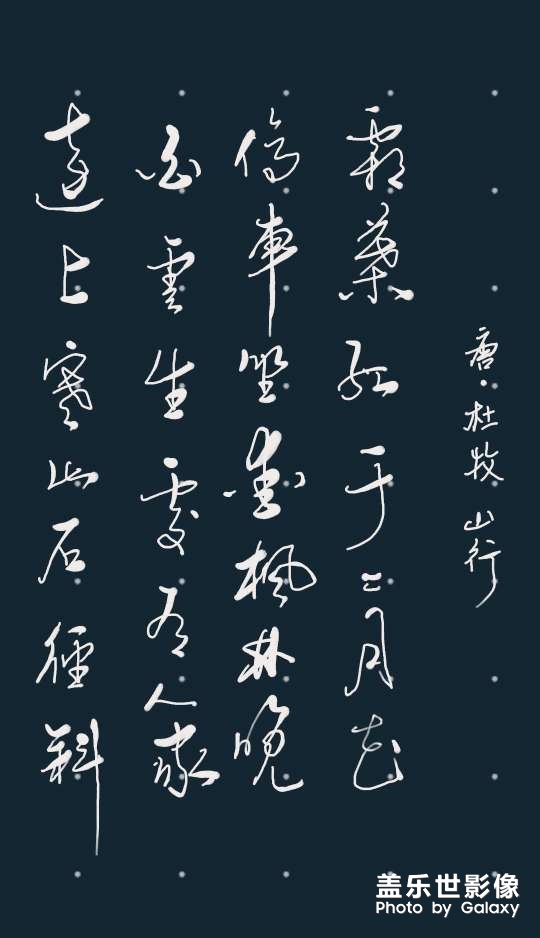 遠上寒山石徑斜
白雲生處有人家
停車坐愛楓林晚
霜葉紅于二月花
唐·杜牧 山行
盖乐世影像
Photo by Galaxy